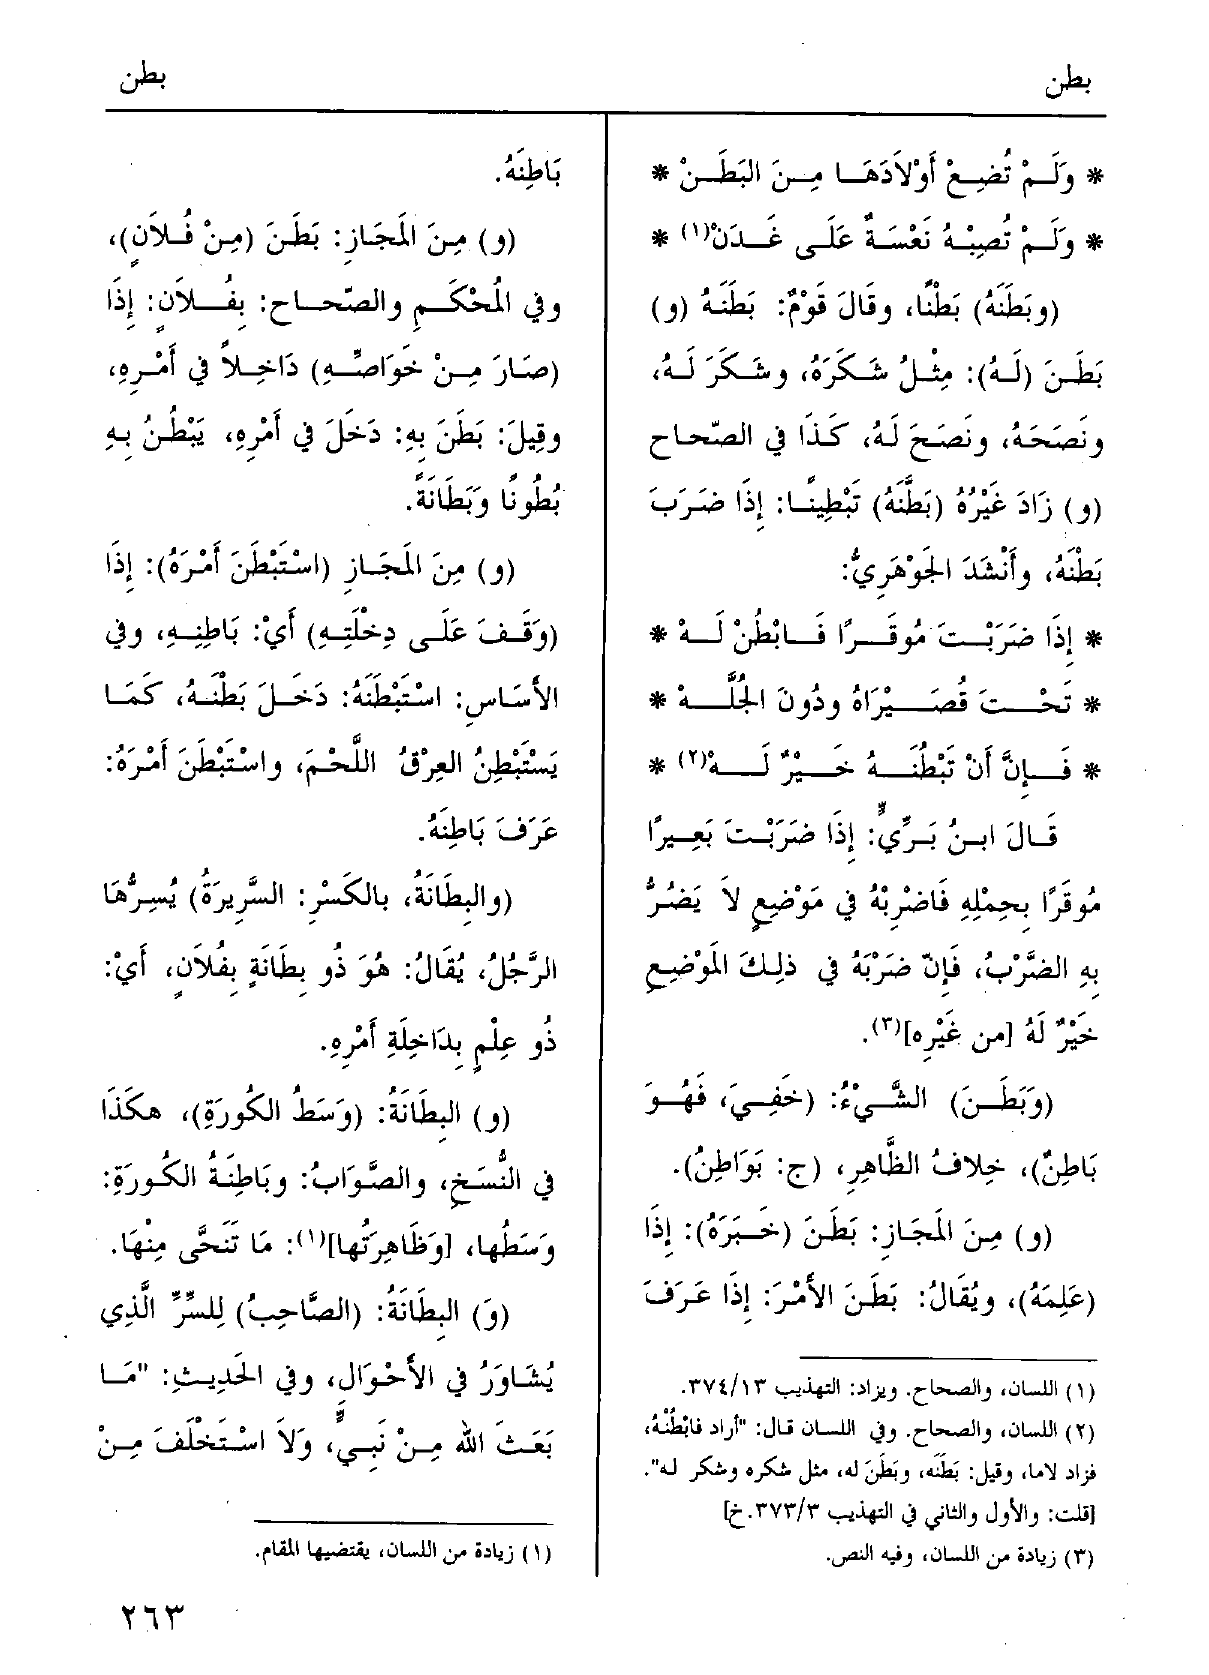 بطن
بطن
* ولَمْ تُضِعْ أَوْلاَدَهَا مِنَ البَطَنْ *
* ولَمْ تُصِبْهُ نَعْسَةٌ عَلَى غَدَنْ(١) *
(وبَطَنَهُ) بَطْنًا، وقَالَ قَوْمٌ: بَطَنَهُ (و)
بَطَنَ (لَهُ): مِثْلُ شَكَرَهُ، وشَكَرَ لَهُ،
ونَصَحَهُ، ونَصَحَ لَهُ، كَذَا فِي الصّحاح
(و) زَادَ غَيْرُهُ (بَطَّنَهُ) تَبْطِينًا: إِذَا ضَرَبَ
بَطْنَهُ، وأَنْشَدَ الجَوْهَرِيُّ:
* إِذَا ضَرَبْتَ مُوقَرًا فَابْطُنْ لَهْ *
* تَحْتَ قُصَيْرَاهُ ودُونَ الجُلَّهْ *
* فَإِنَّ أَنْ تَبْطُنَهُ خَيْرٌ لَهْ(٢) *
قَالَ ابنُ بَرِّيٍّ: إِذَا ضَرَبْتَ بَعِيرًا
مُوقَرًا بِحِمْلِهِ فَاضْرِبْهُ فِي مَوْضِعٍ لاَ يَضُرُّ
بِهِ الضَّرْبُ، فَإِنّ ضَرْبَهُ فِي ذلِكَ المَوْضِعِ
خَيْرٌ لَهُ [من غَيْرِه](٣).
(وَبَطَنَ) الشَّيْءُ: (خَفِيَ، فَهُوَ
بَاطِنٌ)، خِلافُ الظَّاهِرِ، (ج: بَوَاطِنُ).
(و) مِنَ المَجَازِ: بَطَنَ (خَبَرَهُ): إِذَا
(عَلِمَهُ)، ويُقَالُ: بَطَنَ الأَمْرَ: إِذَا عَرَفَ
(١) اللسان، والصحاح. ويزاد: التهذيب ٣٧٤/١٣.
(٢) اللسان، والصحاح. وفي اللسان قال: "أراد فابْطُنْهُ،
فزاد لاما، وقيل: بَطَنَه، وبَطَنَ له، مثل شكره وشكر له".
[قلت: والأول والثاني في التهذيب ٣٧٣/٣.خ]
(٣) زيادة من اللسان، وفيه النص.
بَاطِنَهُ.
(و) مِنَ المَجَازِ: بَطَنَ (مِنْ فُلاَنٍ)،
وفي المُحْكَمِ والصّحاح: بِفُلاَنٍ: إِذَا
(صَارَ مِنْ خَوَاصِّهِ) دَاخِلاً فِي أَمْرِهِ،
وقِيلَ: بَطَنَ بِهِ: دَخَلَ فِي أَمْرِهِ، يَبْطُنُ بِهِ
بُطُونًا وَبَطَانَةً.
(و) مِنَ المَجَازِ (اسْتَبْطَنَ أَمْرَهُ): إِذَا
(وَقَفَ عَلَى دِخْلَتِهِ) أَيْ: بَاطِنِهِ، وفي
الأَسَاسِ: اسْتَبْطَنَهُ: دَخَلَ بَطْنَهُ، كَمَا
يَسْتَبْطِنُ العِرْقُ اللَّحْمَ، واسْتَبْطَنَ أَمْرَهُ:
عَرَفَ بَاطِنَهُ.
(والبِطَانَةُ، بالكَسْرِ: السَّرِيرَةُ) يُسِرُّهَا
الرَّجُلُ، يُقَالُ: هُوَ ذُو بِطَانَةٍ بِفُلاَنٍ، أَيْ:
ذُو عِلْمٍ بِدَاخِلَةِ أَمْرِهِ.
(و) البِطَانَةُ: (وَسَطُ الكُورَةِ)، هكَذَا
فِي النُّسَخِ، والصَّوَابُ: وبَاطِنَةُ الكُورَةِ:
وَسَطُها، [وَظَاهِرَتُها](١): مَا تَنَحَّى مِنْهَا.
(وَ) البِطَانَةُ: (الصَّاحِبُ) لِلسِّرِّ الَّذِي
يُشَاوَرُ فِي الأَحْوَالِ، وفي الحَدِيثِ: "مَا
بَعَثَ الله مِنْ نَبِيٍّ، وَلاَ اسْتَخْلَفَ مِنْ
(١) زيادة من اللسان، يقتضيها المقام.
٢٦٣